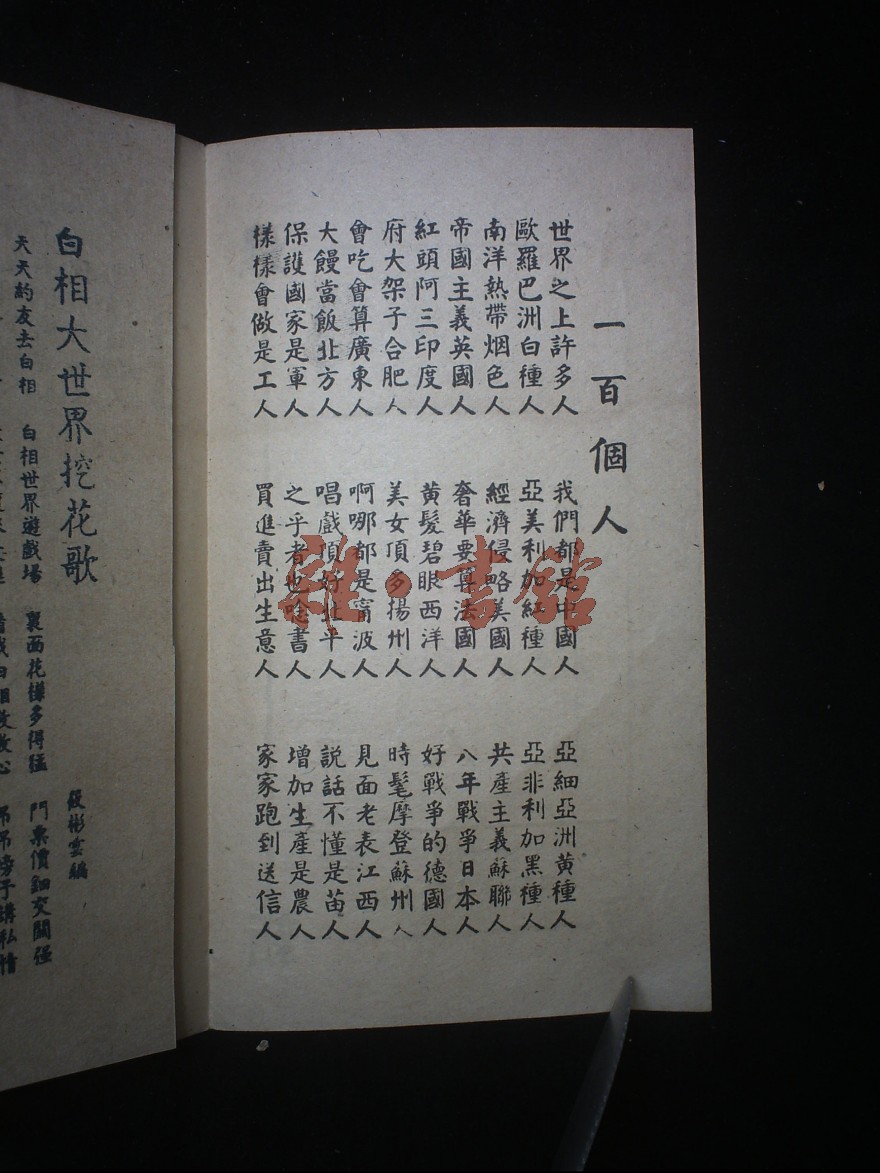 一百個人
世界之上許多人 我們都是中國人 亞細亞洲黃種人
歐羅巴洲白種人 亞美利加紅種人 亞非利加黑種人
南洋熱帶烟色人 經濟侵略美國人 共產主義蘇聯人
帝國主義英國人 奢華要算法國人 八年戰爭日本人
紅頭阿三印度人 黃髮碧眼西洋人 好戰爭的德國人
府大架子合肥人 美女頂多揚州人 時髦摩登蘇州人
會吃會算廣東人 啊哪都是甯波人 見面老表江西人
大饅當飯北方人 唱戲頂好北平人 説話不懂是苗人
保護國家是軍人 之乎者也唸書人 增加生產是農人
樣樣會做是工人 買進賣出生意人 家家跑到送信人
白相大世界挖花歌
筱彬雲編
天天約友去白相 白相世界遊戲場 裏面花樣多得猛 門票價鈿交關强
雜·書館